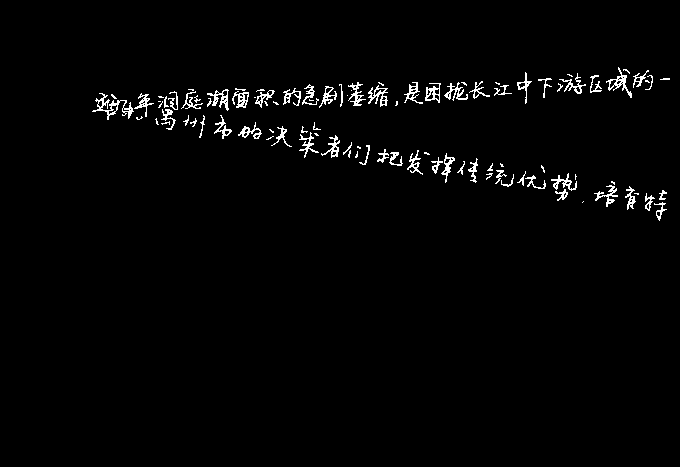 年洞庭湖面积的急剧萎缩,是困扰长江中下游区域的一
禹州市的决策者们把发挥传统优势,培育特